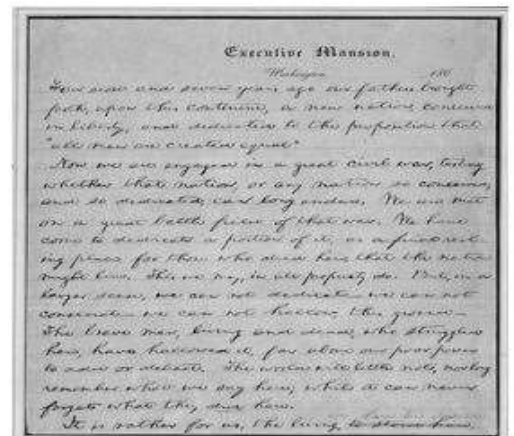 Executive Mansion,
Washington, 186
Four score and seven years ago our fathers brought
forth, upon this continent, a new nation, conceived
in liberty, and dedicated to the proposition that
"all men are created equal"
Now we are engaged in a great civil war, testing
whether that nation, or any nation so conceived,
and so dedicated, can long endure. We are met
on a great battle field of that war. We have
come to dedicate a portion of it, as a final rest-
ing place for those who died here, that the nation
might live. This we may, in all propriety do. But, in a
larger sense, we can not dedicate we can not
consecrate we can not hallow, this ground
The brave men, living and dead, who struggled
here, have hallowed it, far above our poor power
to add or detract. The world will little note, nor long
remember what we say here; while it can never
forget what they did here.
It is rather for us, the living, here.